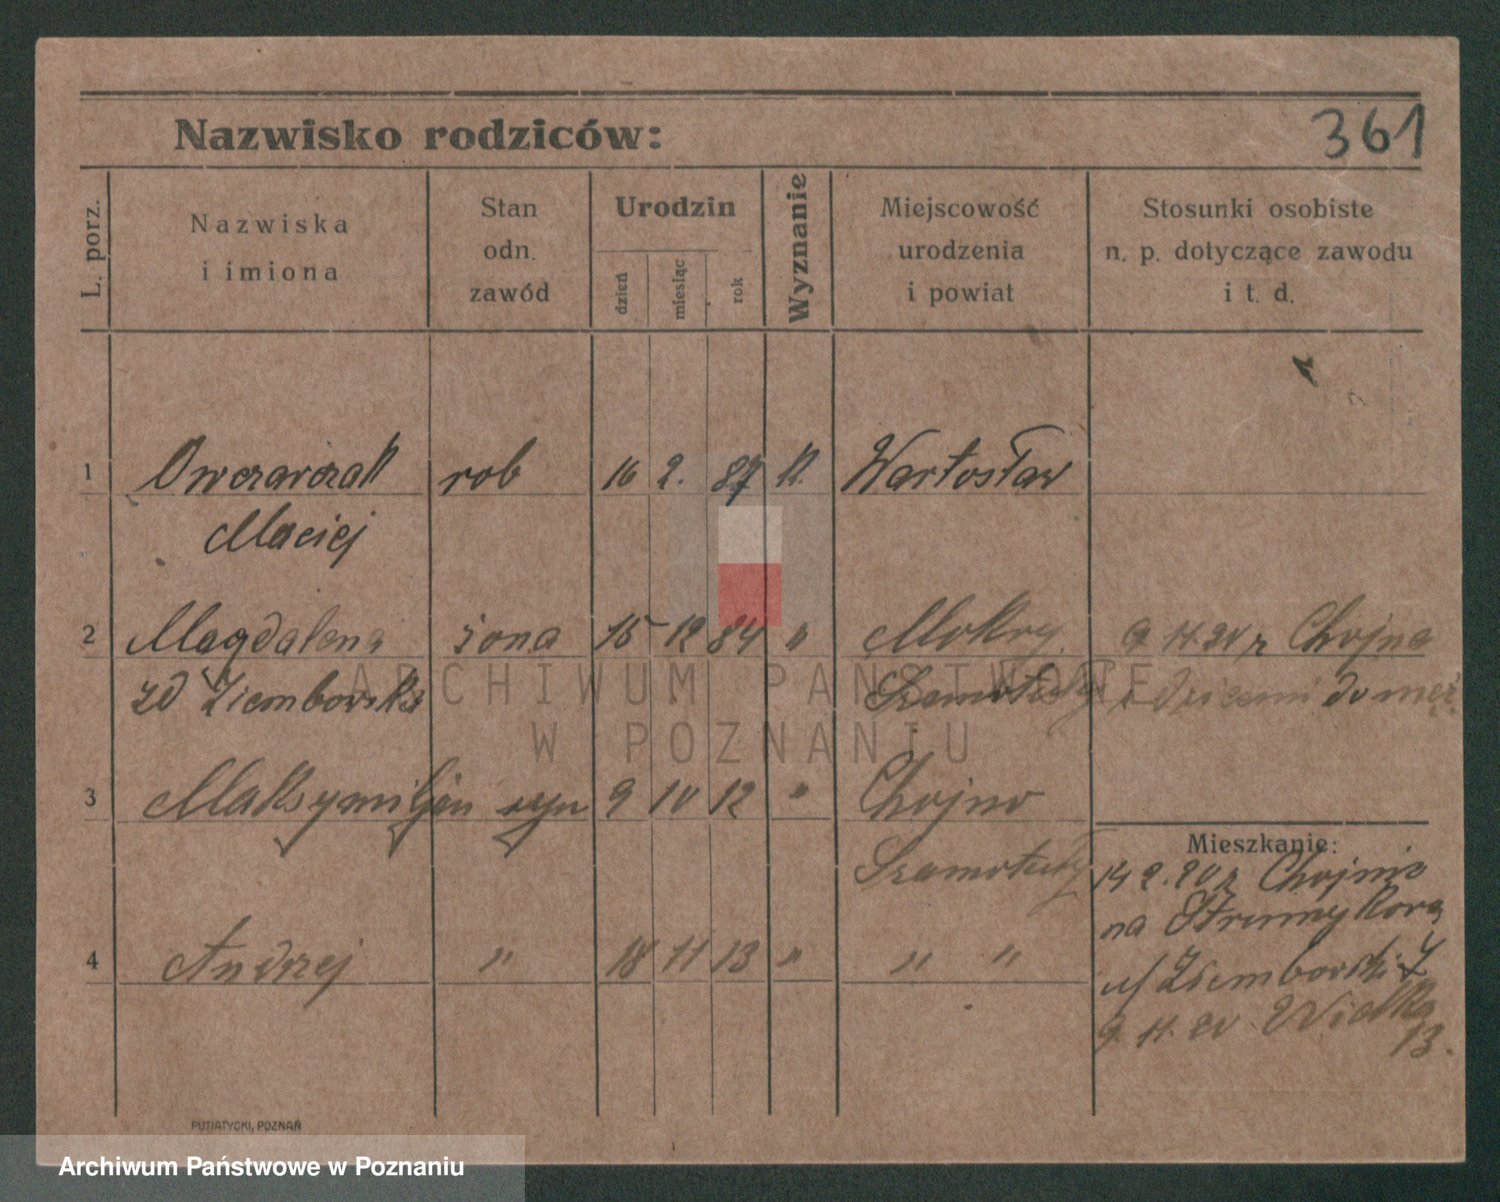 Nazwisko rodziców:
361
L. porz.
Nazwiska
i imiona
Stan
odn.
zawód
Urodzin
dzień
miesiąc
rok
Wyznanie
Miejscowość
urodzenia
i powiat
Stosunki osobiste
n. p. dotyczące zawodu
i t. d.
1 Owczarczak rob 16 2. 87 K. Wartosław
Maciej
2 Magdalena żona 15 12 84 " Mokrz Chojna
zd Ziembowska Szamotuły z dziećmi do męż.
3 Maksymiljan syn 9 10 12 " Chojno
Szamotuły
Mieszkanie:
14 2. 20 z Chojnic
na Strumykową
4 Andrzej " 18 11 13 " " "
u/ Ziemborski
Wielka
13.
ARCHIWUM PAŃSTWOWE
W POZNANIU
PUTIATYCKI, POZNAŃ
Archiwum Państwowe w Poznaniu